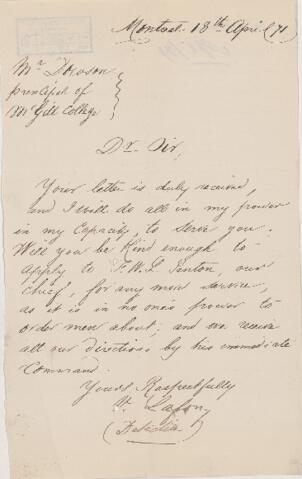 Montreal 18th April /71
Mr Dowson
principal of
McGill College
Dr. Sir,
Your letter is duly received,
and I will do all in my power
in my Capacity, to serve you.
Will you be Kind enough to
Apply to F. W. L. Penton, our
chief, for any more service,
as it is in no ones power to
order men about; and we receive
all our directions by his immediate
Command.
Yours Respectfully
Lafon
(Detective)